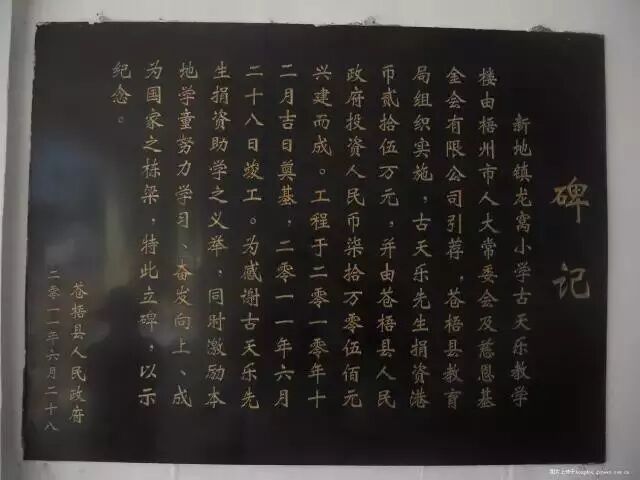 碑记
新地镇龙窝小学古天乐教学
楼由梧州市人大常委会及慈恩基
金会有限公司引荐，苍梧县教育
局组织实施，古天乐先生捐资港
币贰拾伍万元，并由苍梧县人民
政府投资人民币柒拾万零伍佰元
兴建而成。工程于二零一零年十
二月吉日奠基，二零一一年六月
二十八日竣工。为感谢古天乐先
生捐资助学之义举，同时激励本
地学童努力学习、奋发向上、成
为国家之栋梁，特此立碑，以示
纪念。
苍梧县人民政府
二零一一年六月二十八